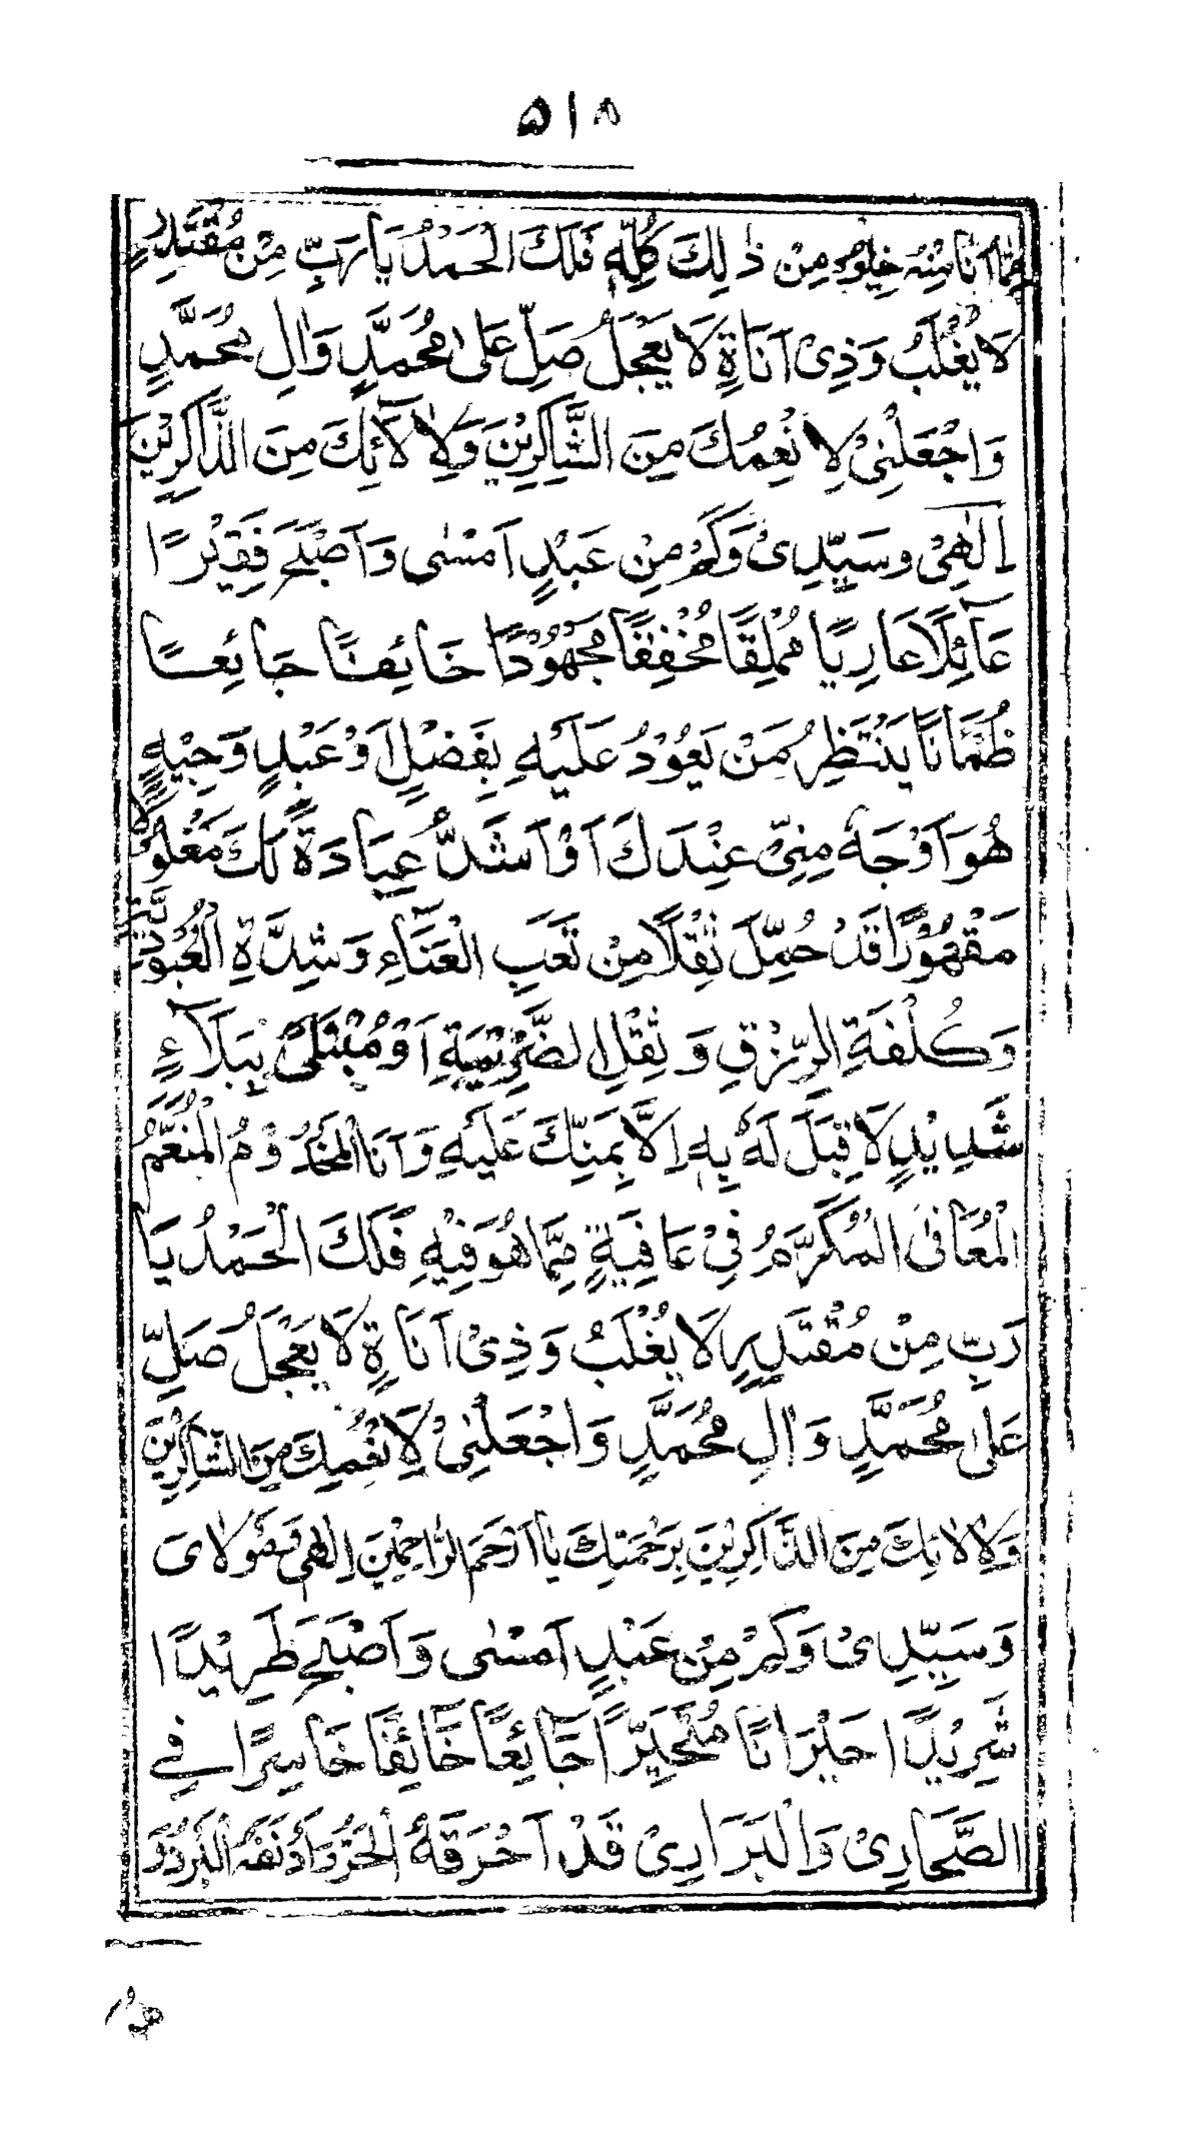 ۵۱۸
مِمَّا اَنَا مِنْهُ خِلْوٌ مِنْ ذٰلِكَ كُلِّهٖ فَلَكَ الْحَمْدُ يَا رَبِّ مِنْ مُقْتَدِرٍ
لَا يُغْلَبُ وَذِیْ اَنَاةٍ لَا يَعْجَلُ صَلِّ عَلٰى مُحَمَّدٍ وَاٰلِ مُحَمَّدٍ
وَاجْعَلْنِیْ لِاَنْعُمِكَ مِنَ الشَّاكِرِيْنَ وَلِاٰلَآئِكَ مِنَ الذَّاكِرِيْنَ
اِلٰهِیْ وسَيِّدِیْ وَكَمْ مِنْ عَبْدٍ اَمْسٰى وَاَصْبَحَ فَقِيْرًا
عَآئِلًا عَارِيًا مُمْلِقًا مُخْفِقًا مَجْهُوْدًا خَائِفًا جَائِعًا
ظَمْئَانًا يَنْتَظِرُ مَنْ يَعُوْدُ عَلَيْهِ بِفَضْلٍ اَوْ عَبْدٍ وَجِيْهٍ
هُوَ اَوْجَهُ مِنِّیْ عِنْدَكَ اَوْ اَشَدُّ عِبَادَةً لَكَ مَغْلُوْلًا
مَقْهُوْرًا قَدْ حُمِّلَ ثِقْلًا مِنْ تَعَبِ الْعَنَآءِ وَشِدَّةِ الْعُبُوْدِيَّةِ
وَكُلْفَةِ الرِّزْقِ وَثِقْلِ الضَّرِيْبَةِ اَوْ مُبْتَلًى بِبَلَآءٍ
شَدِيْدٍ لَا قِبَلَ لَهٗ بِهٖ اِلَّا بِمَنِّكَ عَلَيْهِ وَاَنَا الْمَخْدُوْمُ الْمُنَعَّمُ
الْمُعَافٰى الْمُكَرَّمُ فِیْ عَافِيَةٍ مِمَّا هُوَ فِيْهِ فَلَكَ الْحَمْدُ يَا
رَبِّ مِنْ مُقْتَدِرٍ لَا يُغْلَبُ وَذِیْ اَنَاةٍ لَا يَعْجَلُ صَلِّ
عَلٰى مُحَمَّدٍ وَاٰلِ مُحَمَّدٍ وَاجْعَلْنِیْ لِاَنْعُمِكَ مِنَ الشَّاكِرِيْنَ
وَلِاٰلَائِكَ مِنَ الذَّاكِرِيْنَ بِرَحْمَتِكَ يَا اَرْحَمَ الرَّاحِمِيْنَ اِلٰهِیْ وَمَوْلَایَ
وَسَيِّدِیْ وَكَمْ مِنْ عَبْدٍ اَمْسٰى وَاَصْبَحَ طَرِيْدًا
شَرِيْدًا حَيْرَانًا مُتَحَيِّرًا جَآئِعًا خَآئِفًا خَاسِرًا فِی
الصَّحَارِیْ وَالْبَرَارِیْ قَدْ اَحْرَقَهُ الْحَرُّ وَاَدْنَفَهُ الْبَرْدُ وَ